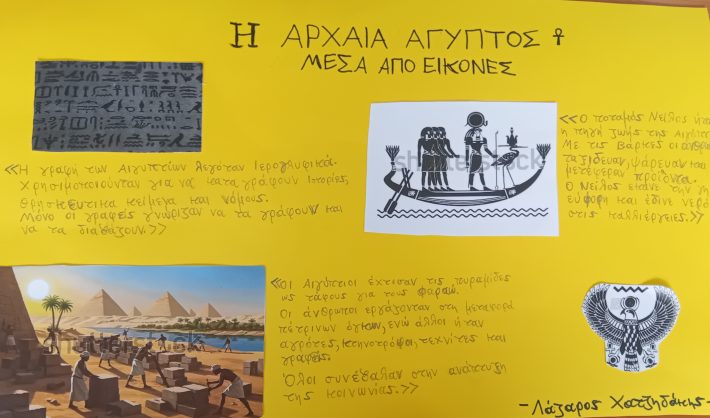 Η ΑΡΧΑΙΑ ΑΓΥΠΤΟΣ ☥
ΜΕΣΑ ΑΠΟ ΕΙΚΟΝΕΣ
<<Η γραφή των Αιγυπτίων λεγόταν Ιερογλυφικά.
Χρησιμοποιούνταν για να καταγράφουν Ιστορίες,
θρησκευτικα κείμενα και νόμους.
Μόνο οι γραφείς γνώριζαν να τα γράφουν και
να τα διαβάζουν.>>
<<Ο ποταμός Νείλος
η πηγή ζωής της
Με τις Βάρκες οι
ταξίδευαν, ψάρευαν και
μετέφεραν προϊόντα.
Ο Νείλος έκανε την γη
εύφορη και έδινε νερό
στις καλλιέργειες.>>
<<Οι Αιγύπτιοι έχτισαν τις πυραμίδες
ως τάφους για τους Φαραώ.
Οι άνθρωποι εργάζονταν στη μεταφορά
πέτρινων όγκων, ενώ άλλοι ήταν
αγρότες, κτηνοτρόφοι, τεχνίτες και
γραφείς.
Όλοι συνέβαλαν στην ανάπτυξη
της κοινωνίας.>>
-Λάζαρος Χατζηδάκης-
shutterstock
shutterstock